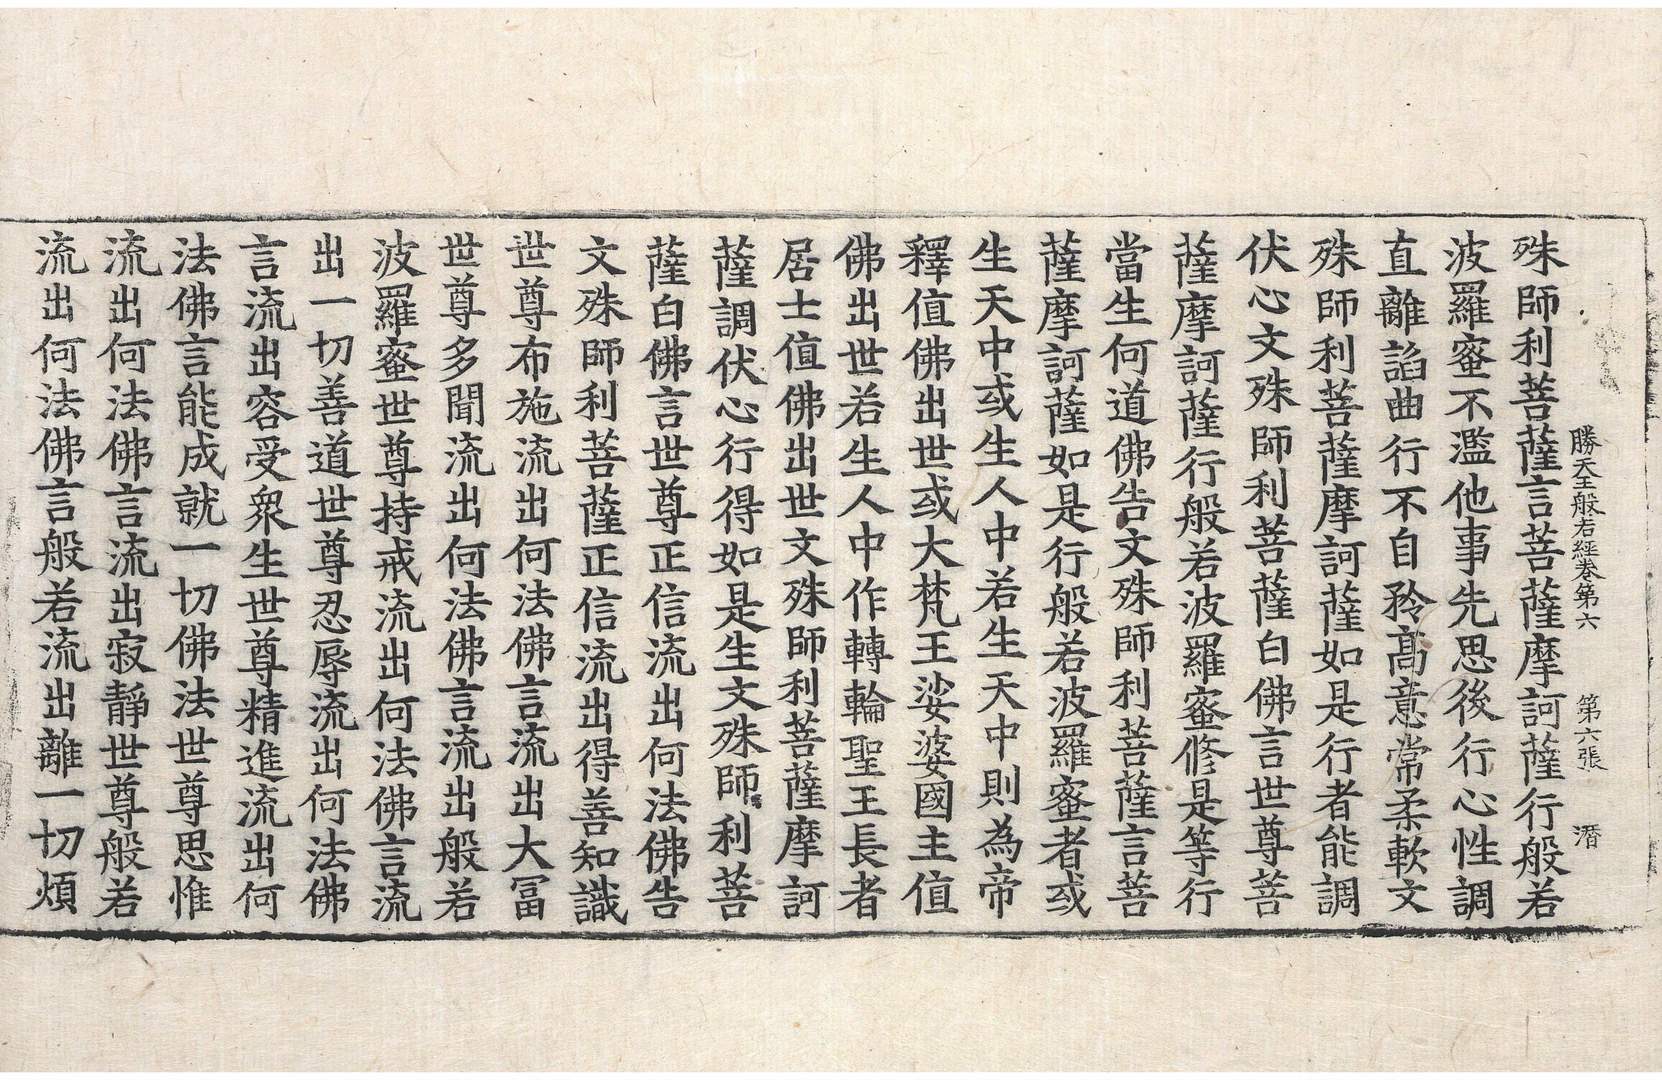 勝天王般若經卷第六 第六張 潛
殊師利菩薩言菩薩摩訶薩行般若
波羅蜜不濫他事先思後行心性調
直離諂曲行不自矜高意常柔軟文
殊師利菩薩摩訶薩如是行者能調
伏心文殊師利菩薩白佛言世尊菩
薩摩訶薩行般若波羅蜜修是等行
當生何道佛告文殊師利菩薩言菩
薩摩訶薩如是行般若波羅蜜者或
生天中或生人中若生天中則為帝
釋值佛出世或大梵王娑婆國主值
佛出世若生人中作轉輪聖王長者
居士值佛出世文殊師利菩薩摩訶
薩調伏心行得如是生文殊師利菩
薩白佛言世尊正信流出何法佛告
文殊師利菩薩正信流出得善知識
世尊布施流出何法佛言流出大冨
世尊多聞流出何法佛言流出般若
波羅蜜世尊持戒流出何法佛言流
出一切善道世尊忍辱流出何法佛
言流出容受衆生世尊精進流出何
法佛言能成就一切佛法世尊思惟
流出何法佛言流出寂靜世尊般若
流出何法佛言般若流出離一切煩